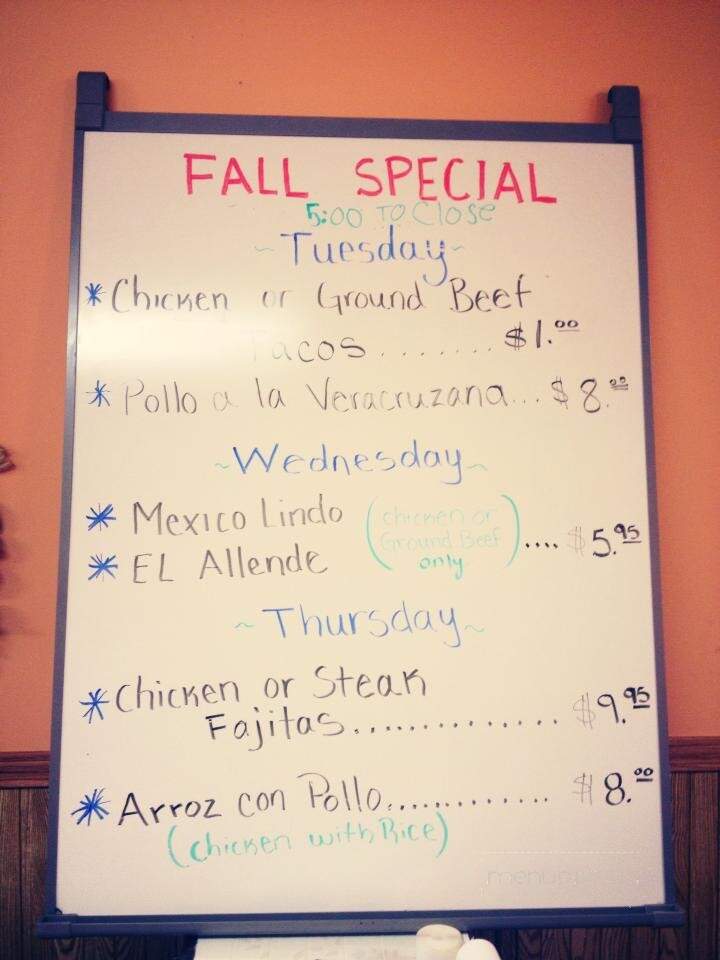 FALL SPECIAL
5:00 TO Close
~Tuesday~
* Chicken or Ground Beef
Tacos ....... $1.00
* Pollo a la Veracruzana... $8.00
~Wednesday~
* Mexico Lindo
* EL Allende
(chicken or
Ground Beef
only) .... $5.95
~Thursday~
* Chicken or Steak
Fajitas............... $9.95
* Arroz con Pollo............ $8.00
(chicken with Rice)